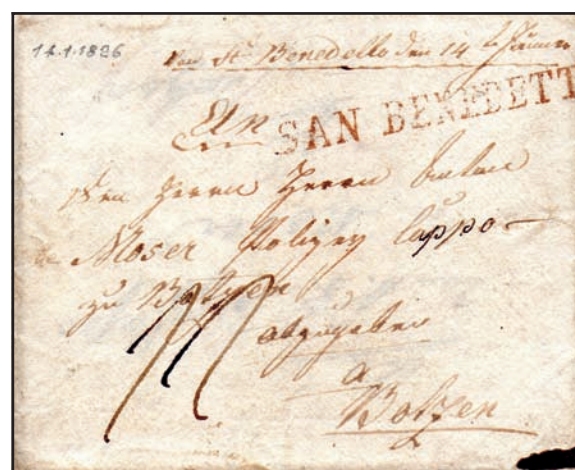 14.1.1826
Von St. Benedetto den 14
An
SAN BENEDETT
Den Herrn Herrn
Moser
zu Botzen
abzugeben
a
Botzen